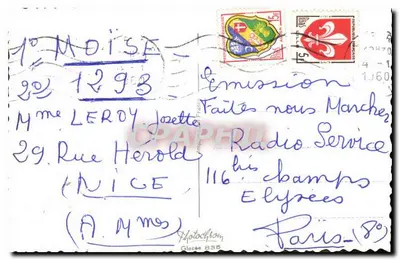 1º MOÏSE
2º) 1293
Mme LEROY Josette
29. Rue Hérold
NICE
(A. Mmes)
Emission
Faites nous Marcher
Radio Service
116 bis champs
Elysées
Paris-(8º)
5F
1960